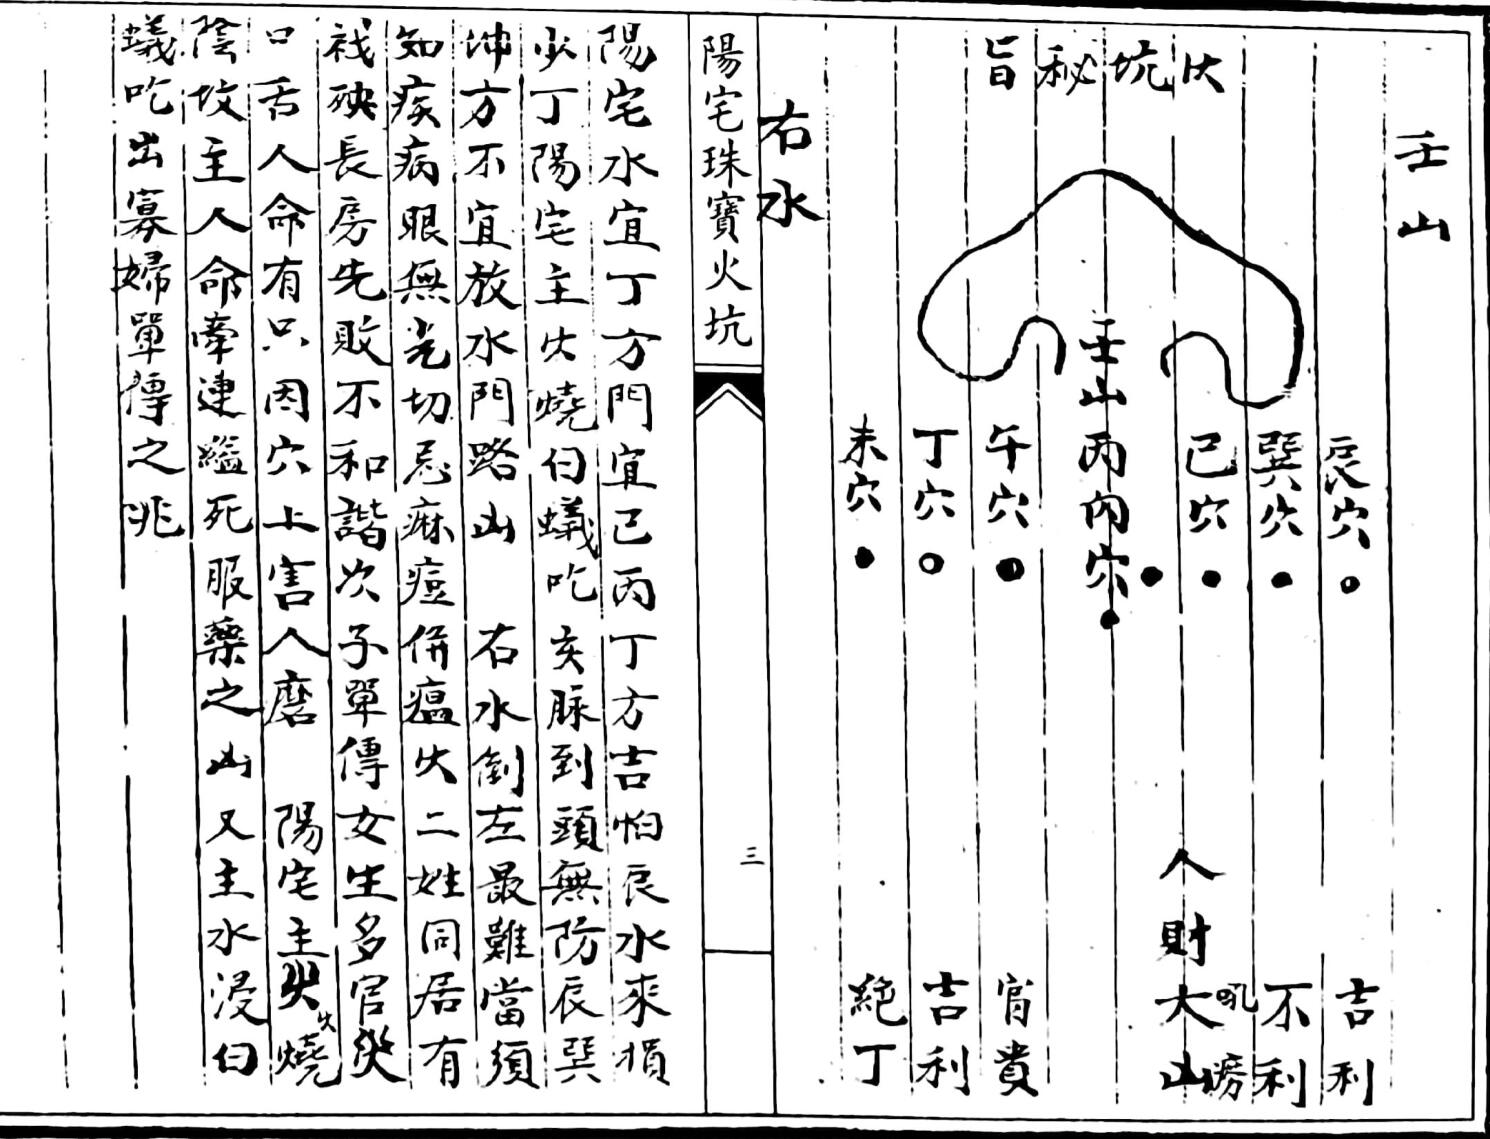 壬山
火坑秘旨
辰穴 吉利
巽穴 不利
巳穴
壬山丙向穴 人財大凶
午穴 富貴
丁穴 吉利
未穴 絶丁
右水
陽宅珠寶火坑
三
陽宅水宜丁方門宜巳丙丁方吉怕辰水來損
少丁陽宅主火燒白蟻吃亥脉到頭無防辰巽
坤方不宜放水門路凶 右水倒左最難當須
知疾病眼無光切忌麻痘併瘟火二姓同居有
禍殃長房先敗不和諧次子單傳女生多官災
口舌人命有只因穴上害人磨 陽宅主火燒
陰坟主人命牽連縊死服藥之凶又主水浸白
蟻吃出寡婦單傳之兆